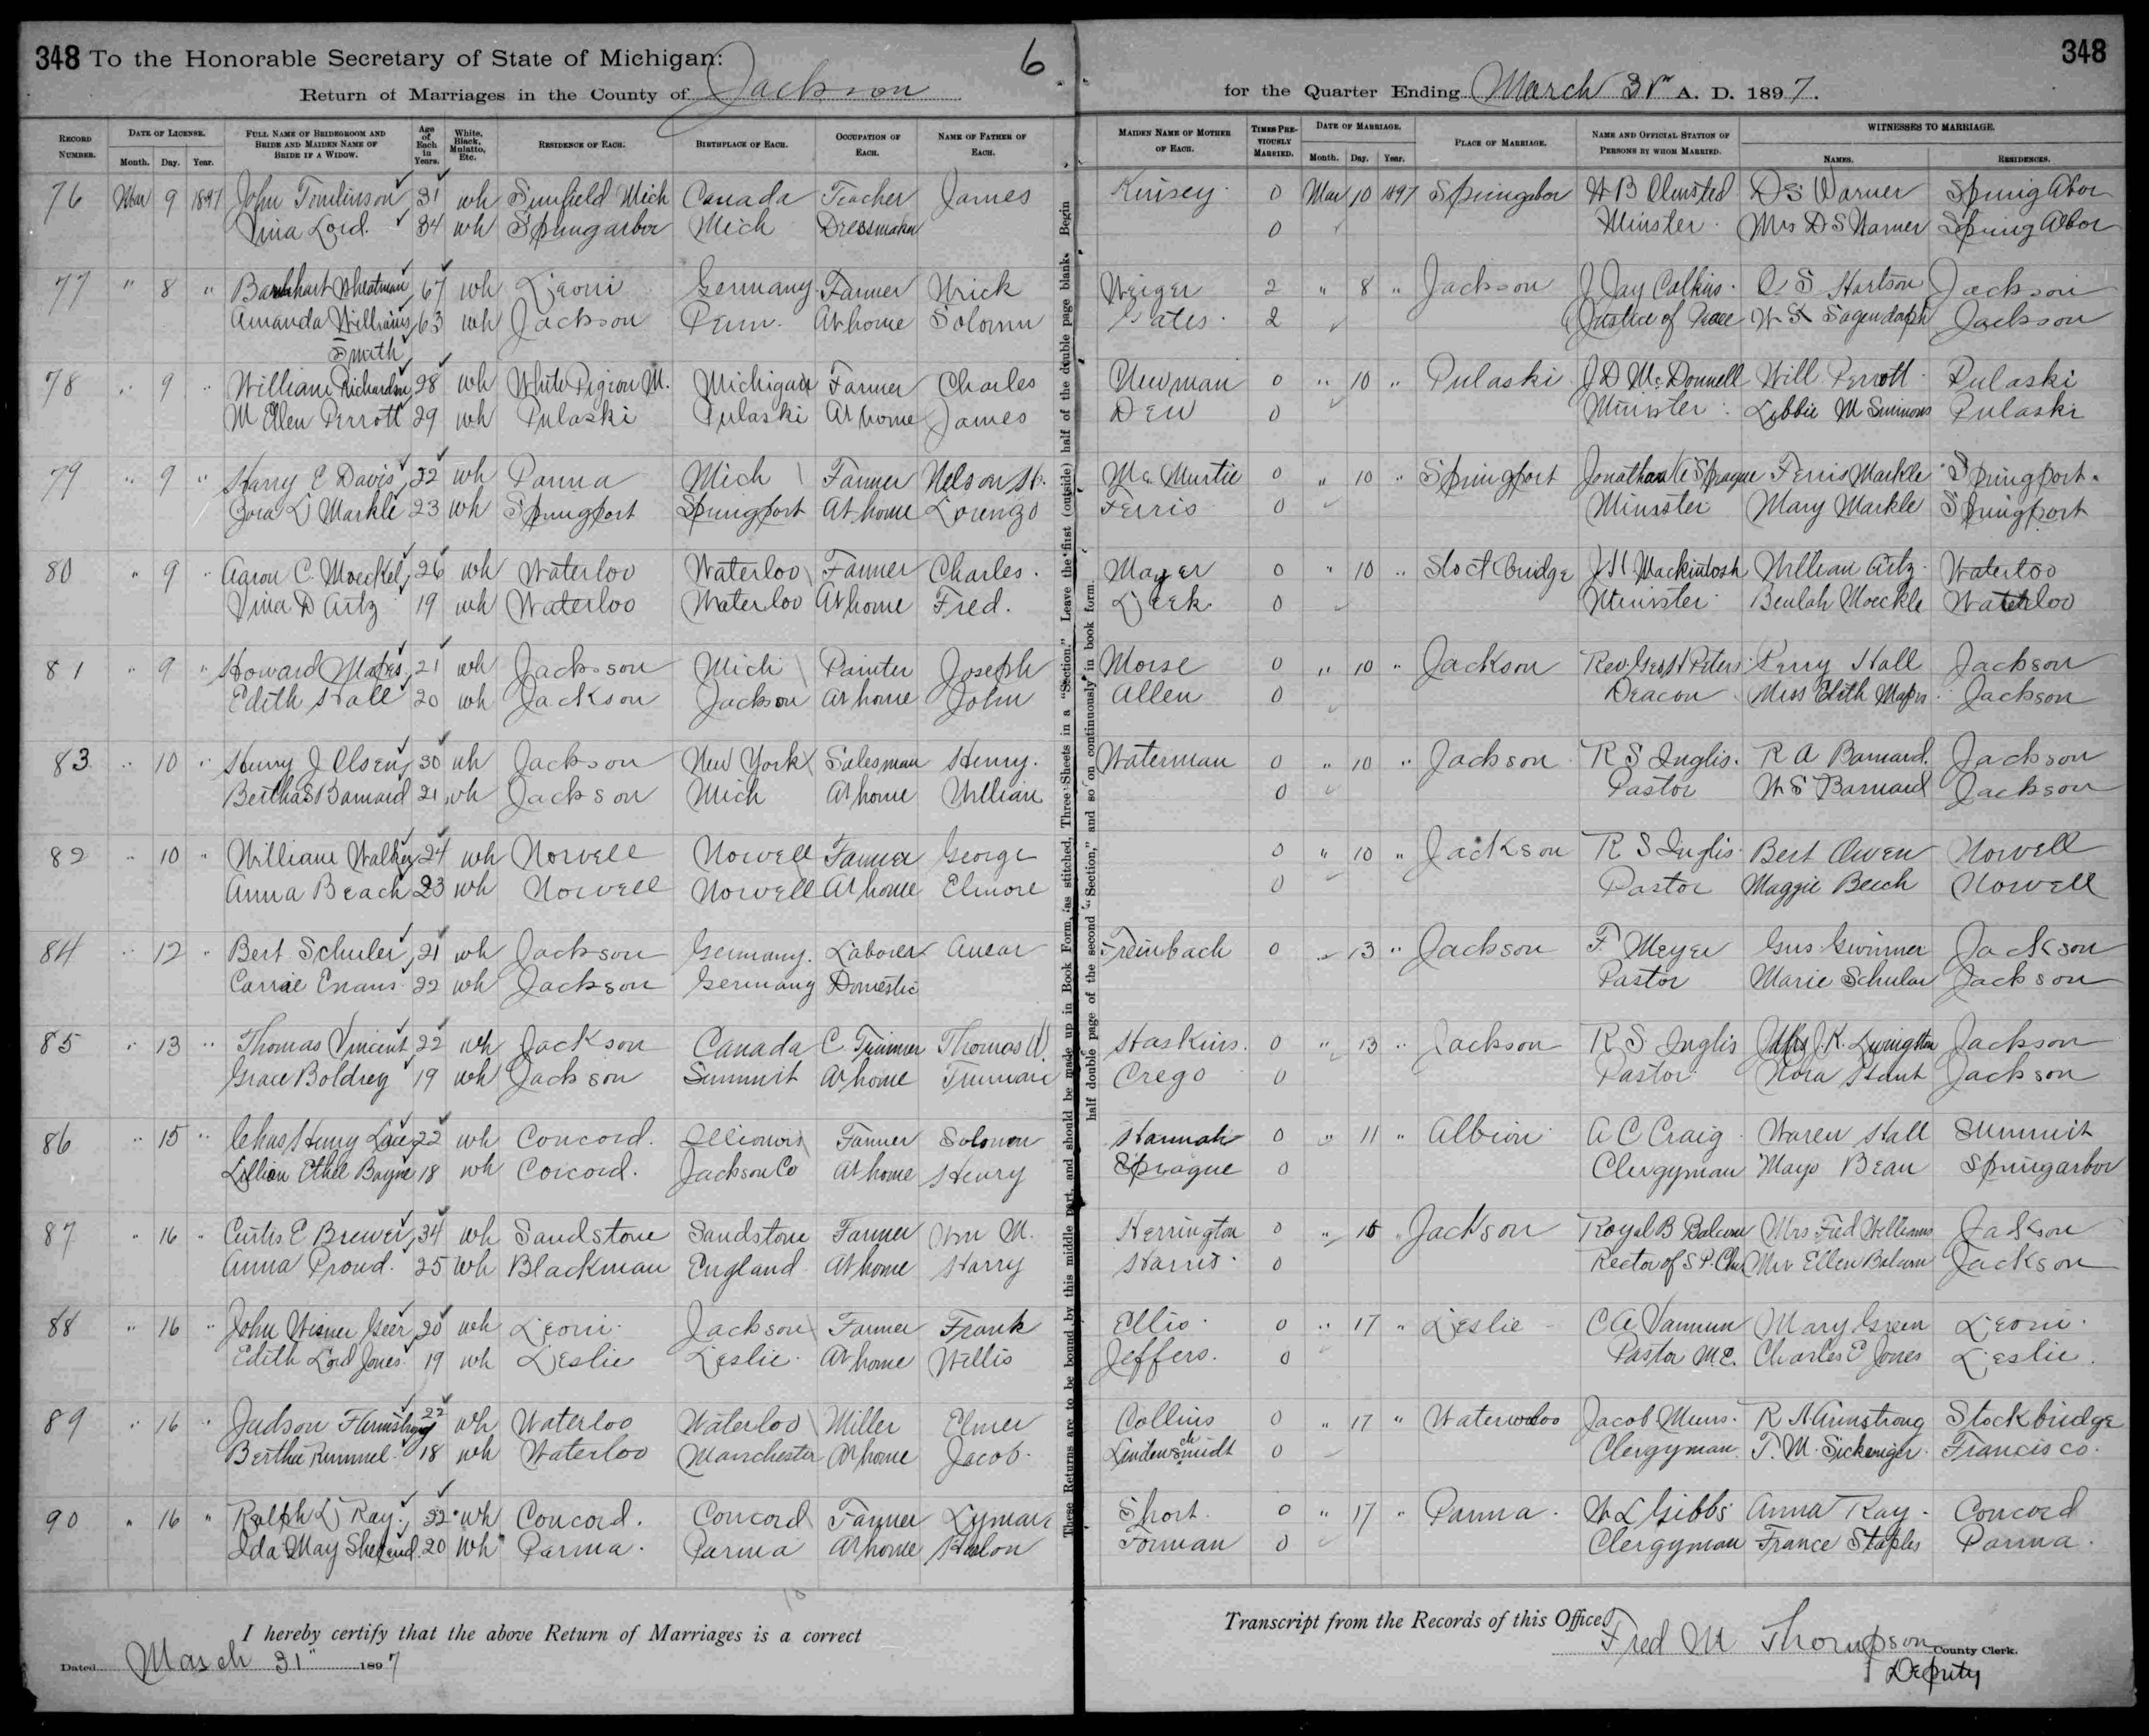 348 To the Honorable Secretary of State of Michigan: 6
Return of Marriages in the County of Jackson
for the Quarter Ending March 31 A. D. 1897.
348
RECORD NUMBER. DATE OF LICENSE. Month. Day. Year. FULL NAME OF BRIDEGROOM AND BRIDE AND MAIDEN NAME OF BRIDE IF A WIDOW. Age of Each in Years. White, Black, Mulatto, Etc. RESIDENCE OF EACH. BIRTHPLACE OF EACH. OCCUPATION OF EACH. NAME OF FATHER OF EACH. MAIDEN NAME OF MOTHER OF EACH. TIMES PREVIOUSLY MARRIED. DATE OF MARRIAGE. Month. Day. Year. PLACE OF MARRIAGE. NAME AND OFFICIAL STATION OF PERSONS BY WHOM MARRIED. WITNESSES TO MARRIAGE. NAMES. RESIDENCES.
76 Mar 9 1897 John Tomlinson 31 wh Sunfield Mich Canada Teacher James Kinsey 0 Mar 10 1897 Springabor H B Olmsted D S Warner Spring Abor
Vina Lord. 34 wh Springarbor Mich Dressmaker 0 Minster Mrs D S Warner Spring Albor
77 " 8 " 67 wh Leoni Germany Farmer Weiger 2 " 8 " Jackson J Jay Calkins. Hartson Jackson
Amanda Williams 63 wh Jackson Penn. At home Solomn Gates 2 Justice of Peace Sagendorph Jackson
Smith
78 " 9 " William Richardson 28 wh White Pigeon M. Michigan Farmer Charles Newman 0 " 10 " Pulaski J D McDonnell Will Perrott Pulaski
M Ellen Perrott 29 wh Pulaski Pulaski At home James Dew 0 Minister Libbie M Simmons Pulaski
79 " 9 " Harry E Davis 22 wh Parma Mich Farmer Nelson H. Mc Murtie 0 " 10 " Springport Sprague Ferris Markle Springport.
Zora L Markle 23 wh Springport Springport At home Lorenzo Ferris 0 Minister Mary Markle Springport
80 " 9 " Aaron C. Moeckel 26 wh Waterloo Waterloo Farmer Charles. Mayer 0 " 10 " Stockbridge J H Mackintosh William Artz Waterloo
Vina D Artz 19 wh Waterloo Waterloo At home Fred. Leek 0 Minister Beulah Moeckle Waterloo
81 " 9 " Howard Mapes 21 wh Jackson Mich Painter Joseph Morse 0 " 10 " Jackson Rev. Geo H Peters Perry Hall Jackson
Edith Hall 20 wh Jackson Jackson At home John Allen 0 Deacon Miss Edith Mapes Jackson
83 " 10 " Henry J Olsen 30 wh Jackson New York Salesman Henry. Waterman 0 " 10 " Jackson R S Inglis. R A Barnard. Jackson
Bertha S Barnard 21 wh Jackson Mich At home William 0 Pastor W S Barnard Jackson
82 " 10 " William Walker 24 wh Norvell Norvell Farmer George 0 " 10 " Jackson R S Inglis Bert Owen Norvell
Anna Beach 23 wh Norvell Norvell At home Elmore 0 Pastor Maggie Beech Norvell
84 " 12 " Bert Schuler 21 wh Jackson Germany. Laborer Freinbach 0 " 13 " Jackson F Meyer Gus Gwinner Jackson
Carrie Evans 22 wh Jackson Germany Domestic Pastor Marie Schular Jackson
85 " 13 " Thomas Vincent 22 wh Jackson Canada C. Trimmer Thomas W. Haskins. 0 " 13 " Jackson R S Inglis J. K. Livingston Jackson
Grace Boldrey 19 wh Jackson Summit At home Truman Crego 0 Pastor Nora Hant Jackson
86 " 15 " Chas Henry Lacey 22 wh Concord. Illionois Farmer Solomon Hannah 0 " 11 " Albion A C Craig Waren Hall Summit
Lillian Ethel Bayne 18 wh Concord. Jackson Co At home Henry Sprague 0 Clergyman Mayo Bean Springarbor
87 " 16 " Curtis E Brewer 34 wh Sandstone Sandstone Farmer Wm M. Herrington 0 " 16 " Jackson Royal B Balcom Mrs Fred Williams Jackson
Anna Proud. 25 wh Blackman England At home Harry Harris 0 Rector of S P. Chu Mrs Ellen Balcom Jackson
88 " 16 " John Wisner Geer 20 wh Leoni. Jackson Farmer Frank Ellis 0 " 17 " Leslie C A Vannun Mary Green Leoni.
Edith Lord Jones 19 wh Leslie Leslie. At home Willis Jeffers. 0 Pastor M E. Charles E Jones Leslie.
89 " 16 " Judson 22 wh Waterloo Waterloo Miller Elmer Collins 0 " 17 " Waterloo Jacob Muns. R A Armstrong Stockbridge
Bertha Rummel 18 wh Waterloo Manchester At home Jacob. Lindenschmidt 0 Clergyman. T. M. Sickenger. Francisco.
90 " 16 " Ralph L Ray. 22 wh Concord. Concord Farmer Lyman Short 0 " 17 " Parma. W L Gibbs Anna Ray Concord
Ida May 20 wh Parma. Parma At home Forman 0 Clergyman France Staples Parma.
These Returns are to be bound by this middle part, and should be made up in Book Form, as stitched, Three Sheets in a "Section." Leave the first (outside) half of the double page blank. Begin
half double page of the second "Section," and so on continuously in book form.
I hereby certify that the above Return of Marriages is a correct Transcript from the Records of this Office.
Dated March 31" 1897
Fred M Thompson County Clerk.
Deputy